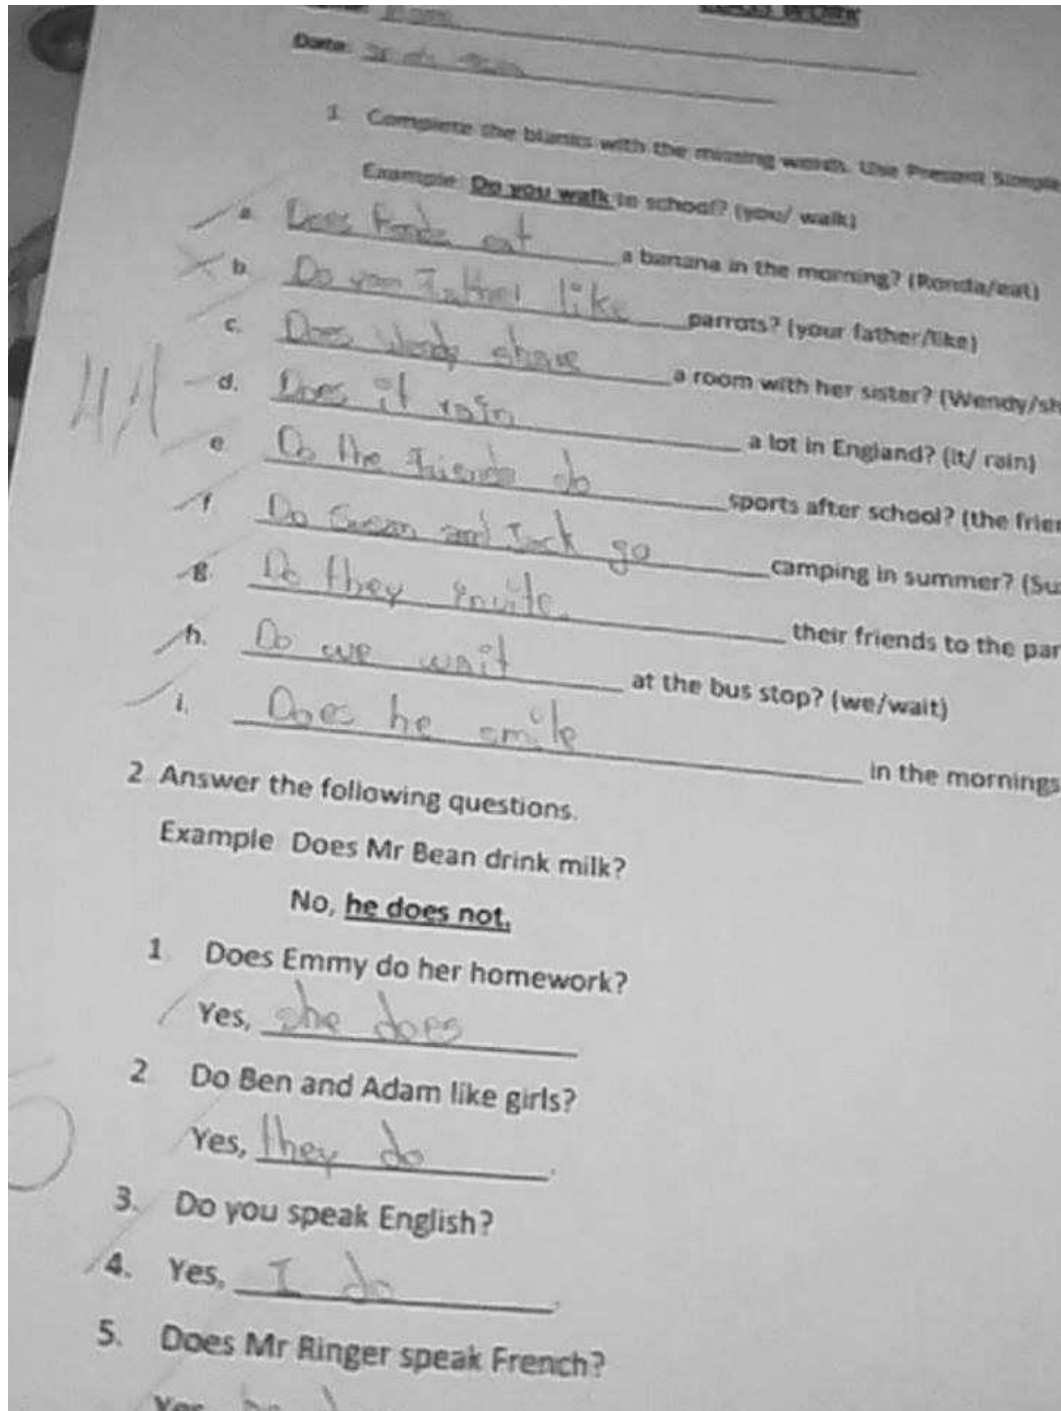 Date:
1 Complete the blanks with the missing words. Use Present Simple
Example: Do you walk to school? (you/ walk)
a. Does Ronda eat a banana in the morning? (Ronda/eat)
b. Do your Father like parrots? (your father/like)
c. Does Wendy share a room with her sister? (Wendy/sh
d. Does it rain a lot in England? (it/ rain)
e Do the Friends do sports after school? (the frien
f Do Susan and Jack go camping in summer? (Su
g. Do they invite their friends to the par
h. Do we wait at the bus stop? (we/wait)
i. Does he smile in the mornings
2 Answer the following questions.
Example Does Mr Bean drink milk?
No, he does not.
1 Does Emmy do her homework?
Yes, she does
2 Do Ben and Adam like girls?
Yes, they do.
3. Do you speak English?
4. Yes, I do.
5. Does Mr Ringer speak French?
Yes he